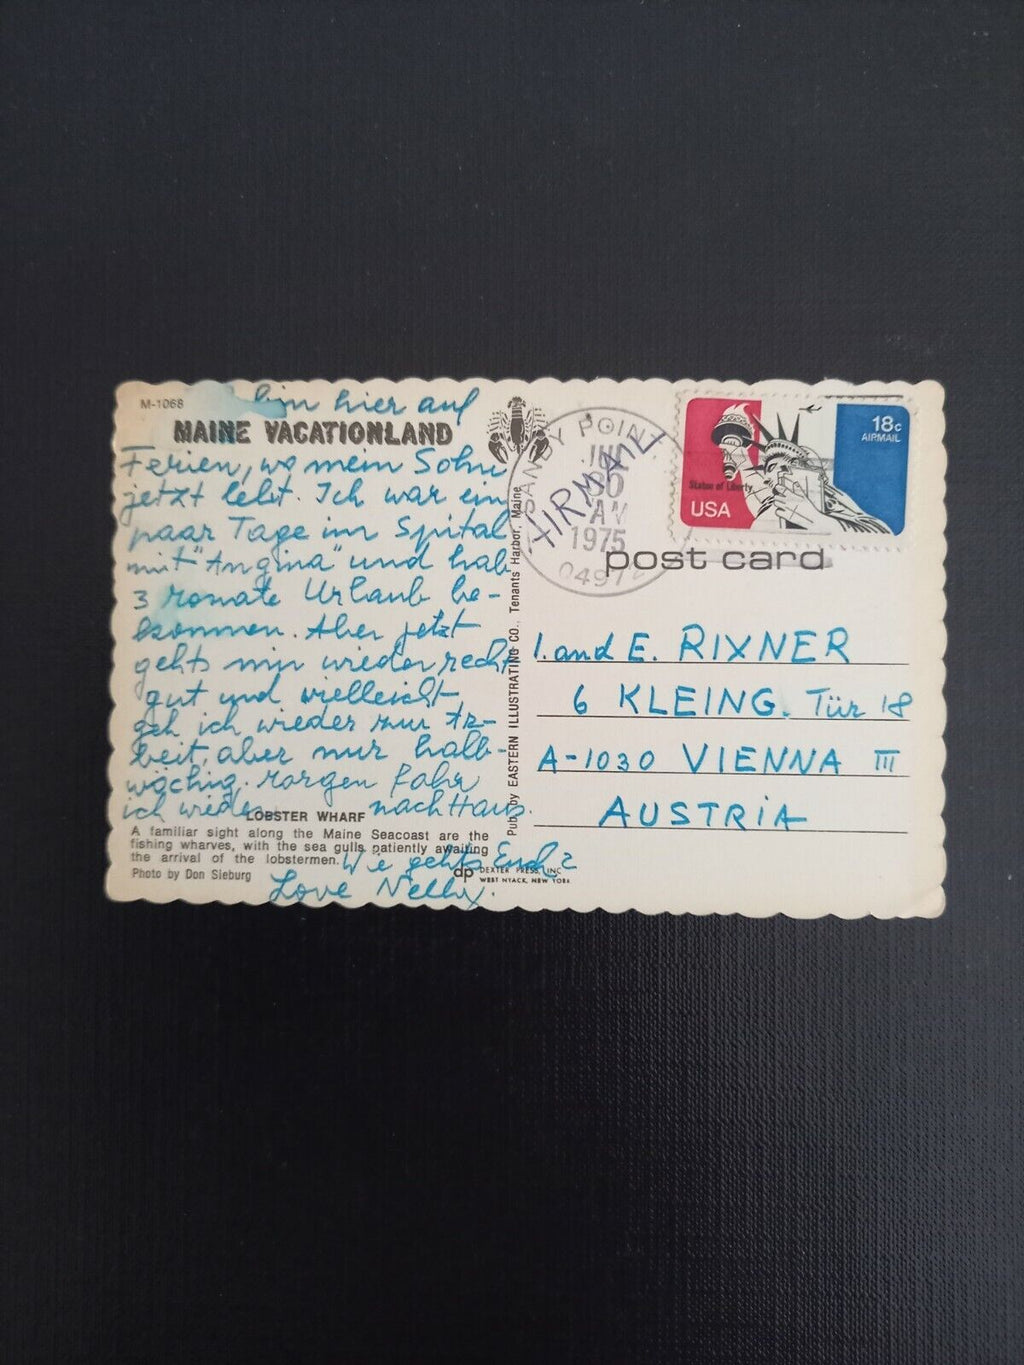 M-1068
bin hier auf
MAINE VACATIONLAND
Ferien, wo mein Sohn
jetzt lebt. Ich war ein
paar Tage im Spital
mit "Angina" und hab
3 Monate Urlaub be-
kommen. Aber jetzt
gehts mir wieder recht
gut und vielleicht
geh ich wieder zur Ar-
beit, aber nur halb-
wöchig. Morgen fahr
ich wieder nach Haus.
LOBSTER WHARF
A familiar sight along the Maine Seacoast are the
fishing wharves, with the sea gulls patiently awaiting
the arrival of the lobstermen.
Photo by Don Sieburg
Wie gehts Euch?
Love Nelly.
Pub. by EASTERN ILLUSTRATING CO., Tenants Harbor, Maine
dp DEXTER PRESS, INC.
WEST NYACK, NEW YORK
SANDY POINT
30
AM
1975
AIRMAIL
18c
AIRMAIL
Statue of Liberty
USA
post card
I. and E. RIXNER
6 KLEING. Tür 18
A-1030 VIENNA III
AUSTRiA